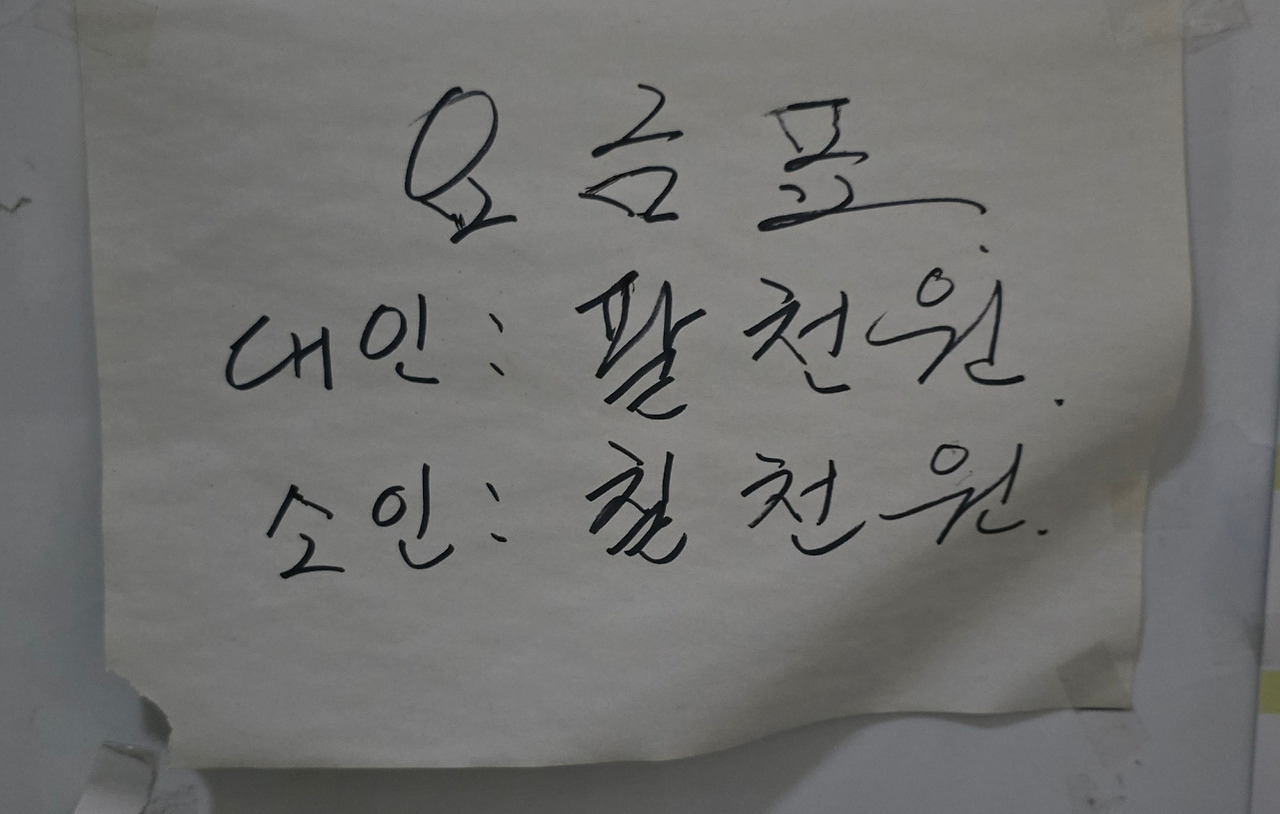 요금표
대인: 팔천원.
소인: 칠천원.